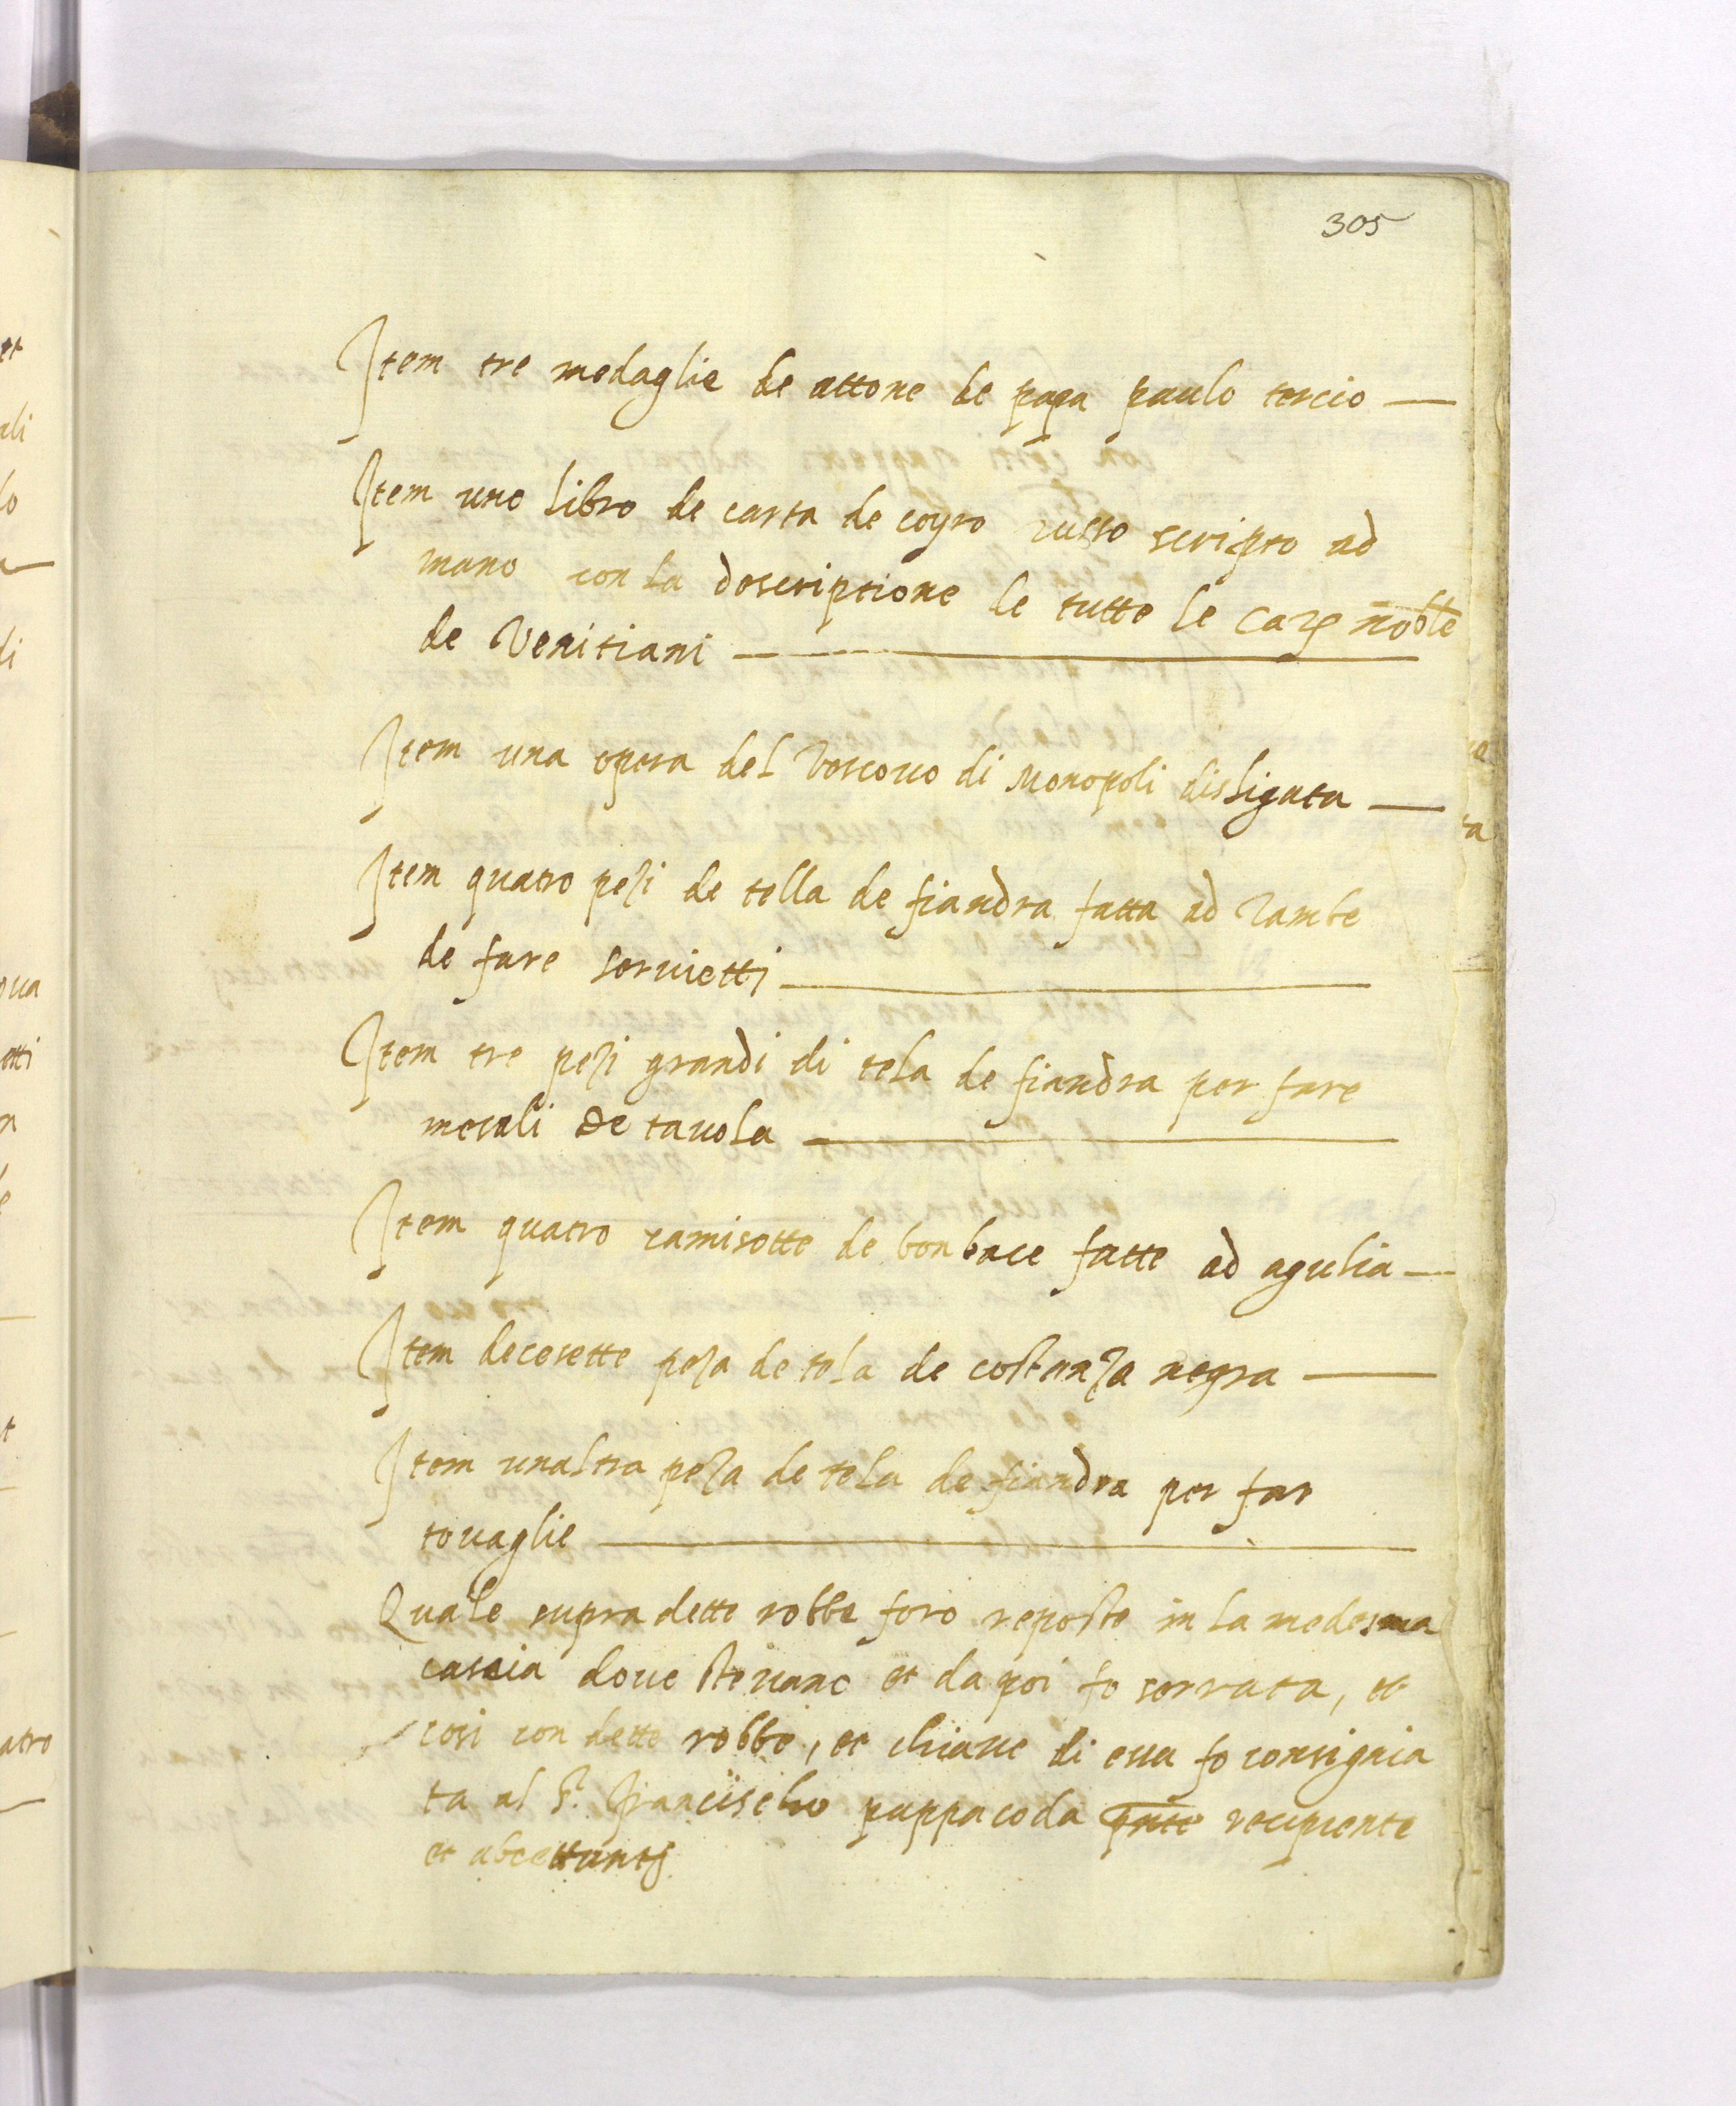 305
Item tre medaglie de attone de papa paulo tercio —
Item uno libro de carta de coyro russo scripto ad
mano con la descriptione de tutte le case noble
de Venitiani —
Item una opera del Vescovo di Monopoli disligata —
Item quatro pezi de tella de fiandra fatta ad
de fare servietti —
Item tre pezi grandi di tela de fiandra per fare
mesali de tavola —
Item quatro camisotte de bonbace fatte ad agulia —
Item decesette peza de tela de costanza negra —
Item unaltra peza de tela de fiandra per far
tovaglie —
Quale supra dette robbe foro reposte in la medesma
cascia dove stevano et da poi fo serrata, et
cosi con dette robbe, et chiave di essa fo consignia
ta al S.r Francischo pappacoda pnte recipiente
et abcettante